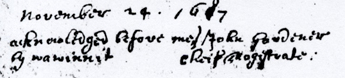 November 24. 1687
acknowledged before me/John Gardener
by wawinnit Cheif Magistrate: